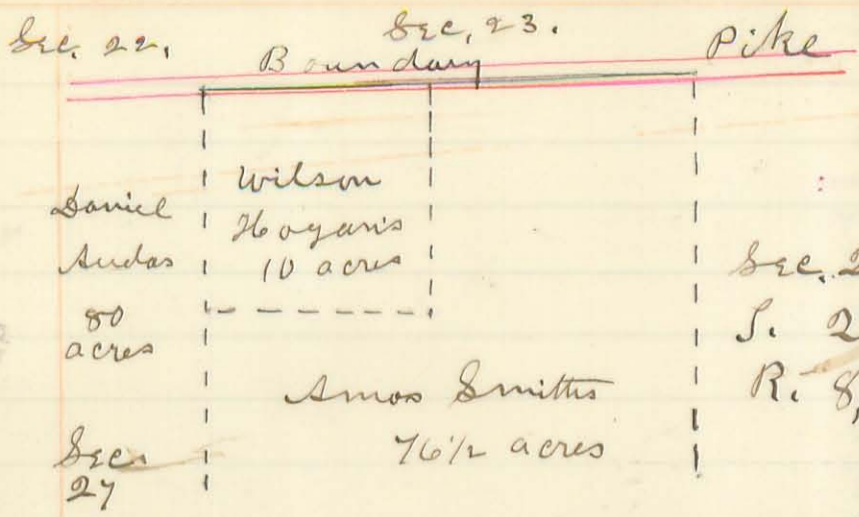 Sec. 22,
Sec, 23.
Boundary
Pike
Daniel
Audas
80
acres
Wilson
Hogan's
10 acres
Sec. 2
R. 8,
Amos Smith's
76 1/2 acres
Sec.
27